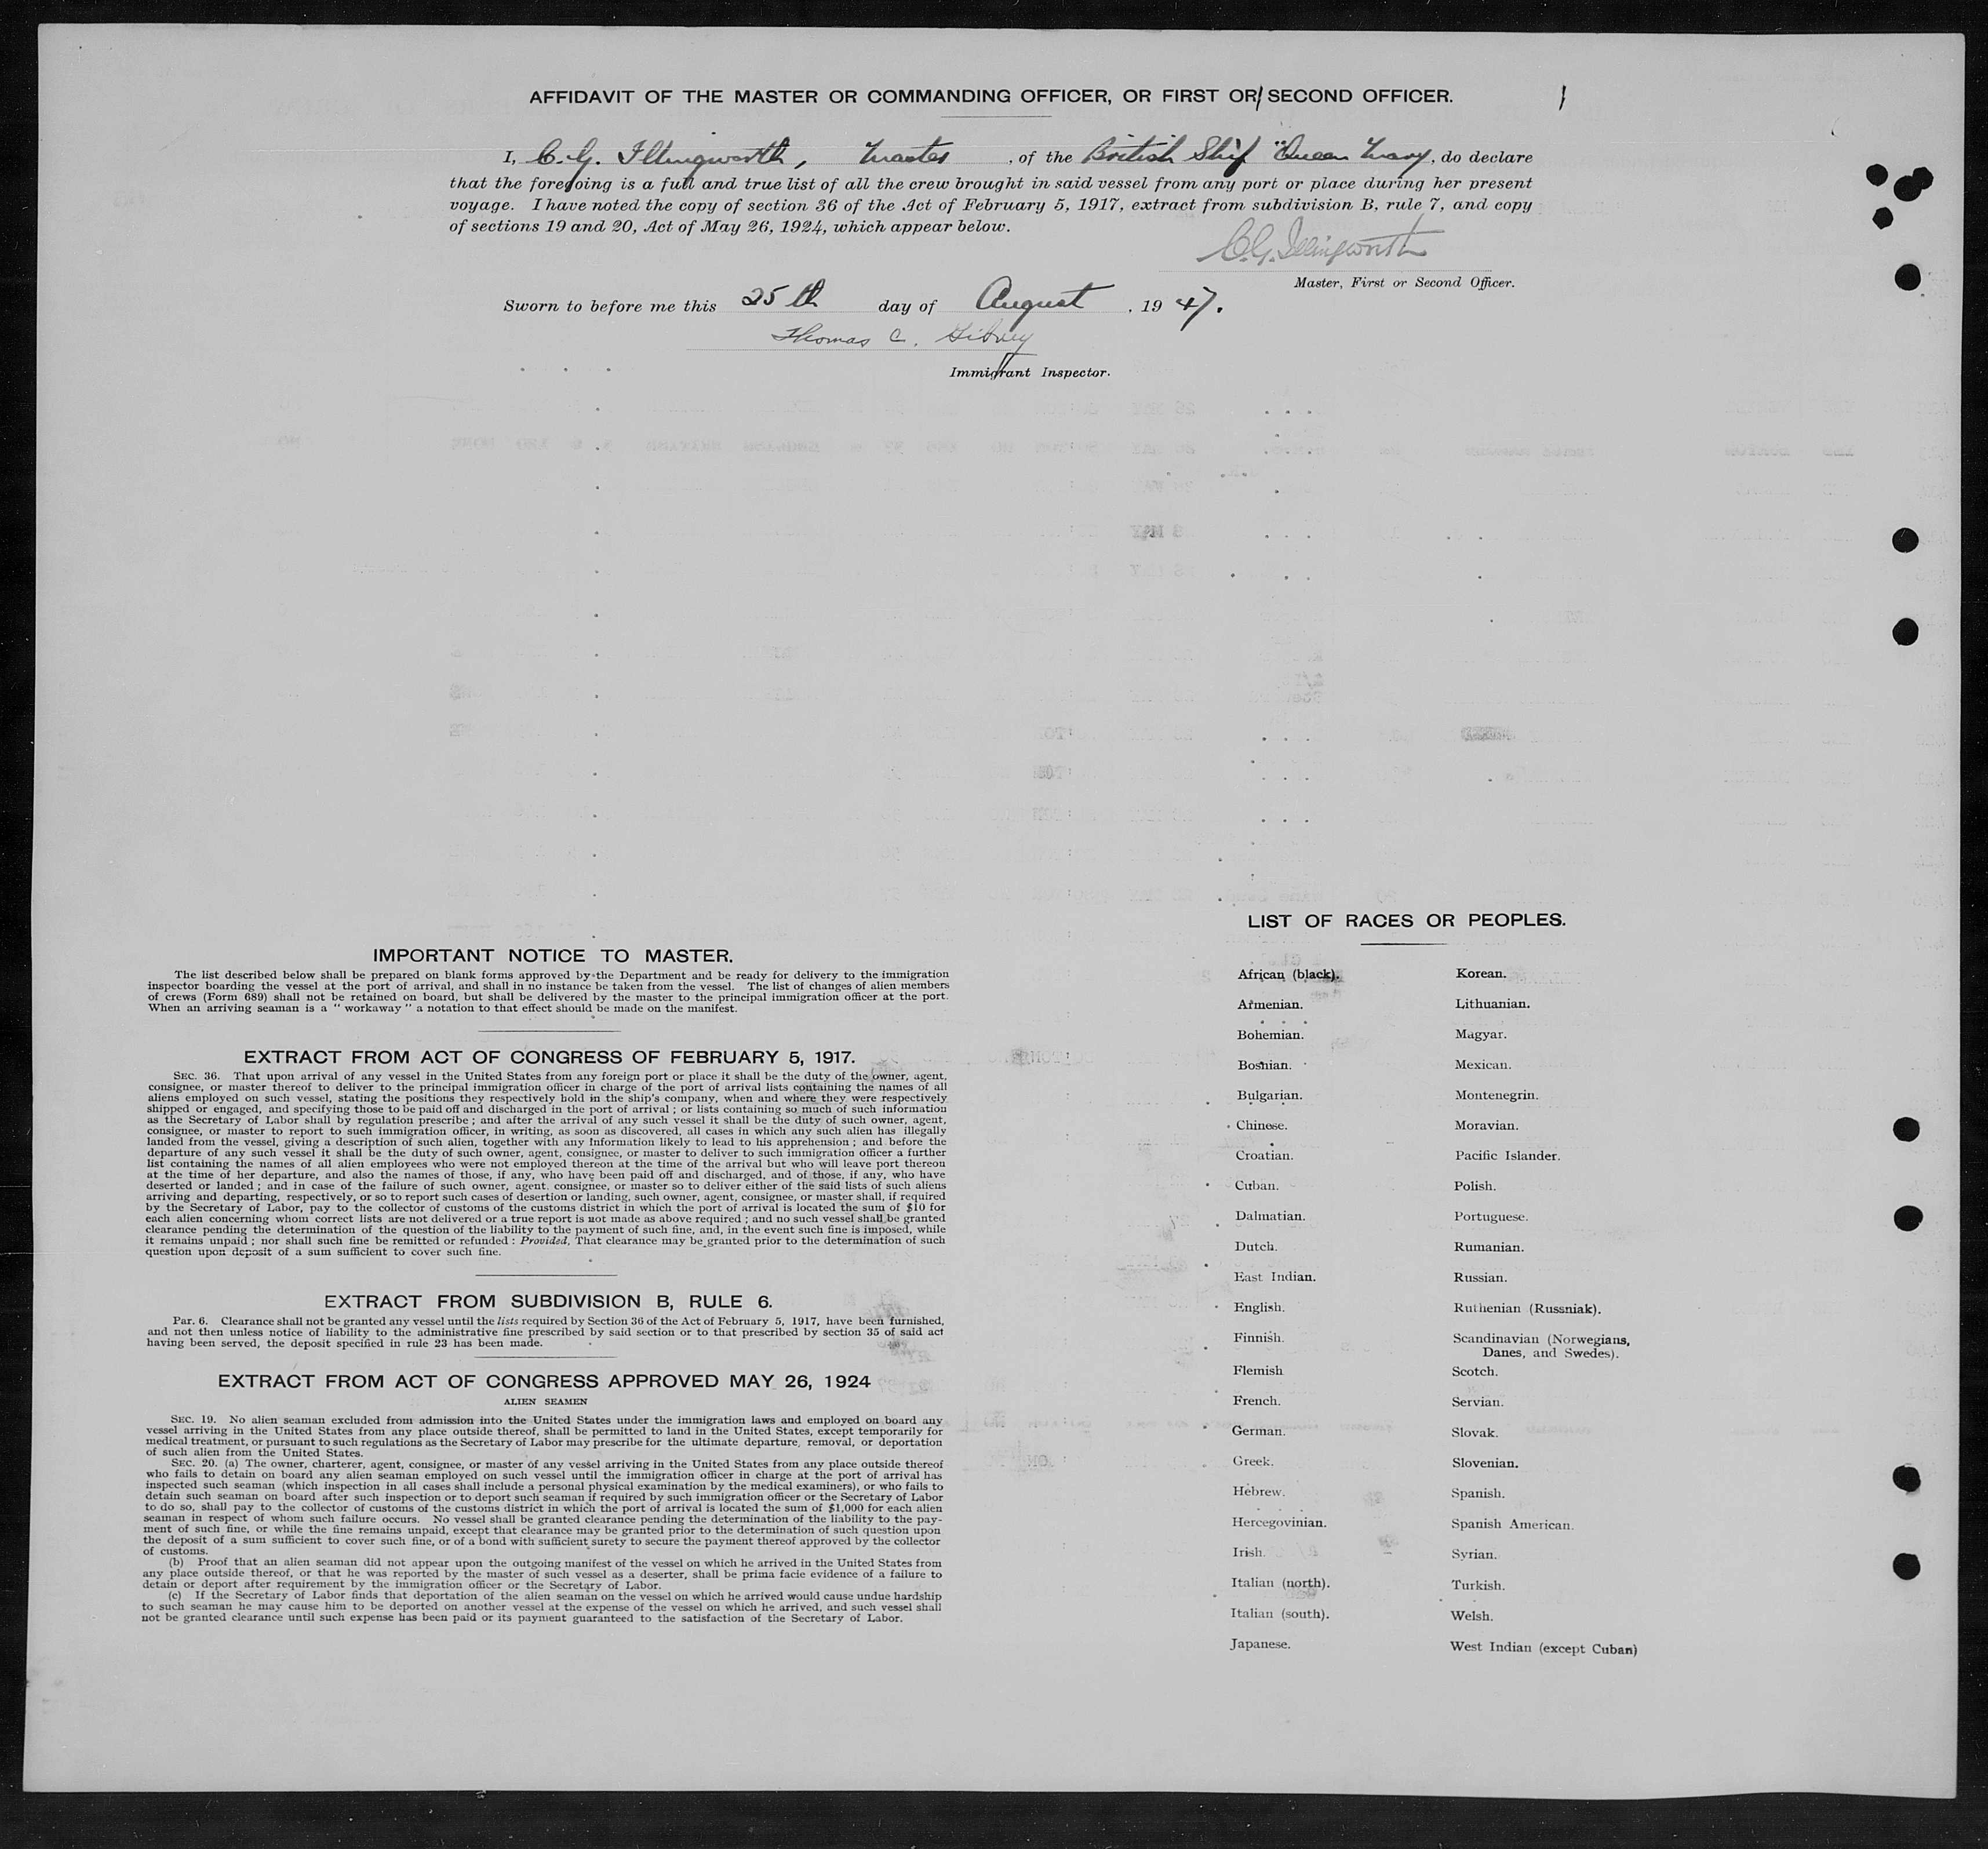 AFFIDAVIT OF THE MASTER OR COMMANDING OFFICER, OR FIRST OR SECOND OFFICER.
I, C.G. Illingworth, Master, of the British Ship "Queen Mary, do declare
that the foregoing is a full and true list of all the crew brought in said vessel from any port or place during her present
voyage. I have noted the copy of section 36 of the Act of February 5, 1917, extract from subdivision B, rule 7, and copy
of sections 19 and 20, Act of May 26, 1924, which appear below.
C.G. Illingworth
Master, First or Second Officer.
Sworn to before me this 25th day of August, 1947.
Thomas C. Gibney
Immigrant Inspector.
IMPORTANT NOTICE TO MASTER.
The list described below shall be prepared on blank forms approved by the Department and be ready for delivery to the immigration
inspector boarding the vessel at the port of arrival, and shall in no instance be taken from the vessel. The list of changes of alien members
of crews (Form 689) shall not be retained on board, but shall be delivered by the master to the principal immigration officer at the port.
When an arriving seaman is a " workaway " a notation to that effect should be made on the manifest.
EXTRACT FROM ACT OF CONGRESS OF FEBRUARY 5, 1917.
SEC. 36. That upon arrival of any vessel in the United States from any foreign port or place it shall be the duty of the owner, agent,
consignee, or master thereof to deliver to the principal immigration officer in charge of the port of arrival lists containing the names of all
aliens employed on such vessel, stating the positions they respectively hold in the ship's company, when and where they were respectively
shipped or engaged, and specifying those to be paid off and discharged in the port of arrival ; or lists containing so much of such information
as the Secretary of Labor shall by regulation prescribe ; and after the arrival of any such vessel it shall be the duty of such owner, agent,
consignee, or master to report to such immigration officer, in writing, as soon as discovered, all cases in which any such alien has illegally
landed from the vessel, giving a description of such alien, together with any Information likely to lead to his apprehension ; and before the
departure of any such vessel it shall be the duty of such owner, agent, consignee, or master to deliver to such immigration officer a further
list containing the names of all alien employees who were not employed thereon at the time of the arrival but who will leave port thereon
at the time of her departure, and also the names of those, if any, who have been paid off and discharged, and of those, if any, who have
deserted or landed ; and in case of the failure of such owner, agent. consignee, or master so to deliver either of the said lists of such aliens
arriving and departing, respectively, or so to report such cases of desertion or landing, such owner, agent, consignee, or master shall, if required
by the Secretary of Labor, pay to the collector of customs of the customs district in which the port of arrival is located the sum of $10 for
each alien concerning whom correct lists are not delivered or a true report is not made as above required ; and no such vessel shall be granted
clearance pending the determination of the question of the liability to the payment of such fine, and, in the event such fine is imposed, while
it remains unpaid ; nor shall such fine be remitted or refunded : Provided, That clearance may be granted prior to the determination of such
question upon deposit of a sum sufficient to cover such fine.
EXTRACT FROM SUBDIVISION B, RULE 6.
Par. 6. Clearance shall not be granted any vessel until the lists required by Section 36 of the Act of February 5, 1917, have been furnished,
and not then unless notice of liability to the administrative fine prescribed by said section or to that prescribed by section 35 of said act
having been served, the deposit specified in rule 23 has been made.
EXTRACT FROM ACT OF CONGRESS APPROVED MAY 26, 1924
ALIEN SEAMEN
SEC. 19. No alien seaman excluded from admission into the United States under the immigration laws and employed on board any
vessel arriving in the United States from any place outside thereof, shall be permitted to land in the United States, except temporarily for
medical treatment, or pursuant to such regulations as the Secretary of Labor may prescribe for the ultimate departure, removal, or deportation
of such alien from the United States.
SEC. 20. (a) The owner, charterer, agent, consignee, or master of any vessel arriving in the United States from any place outside thereof
who fails to detain on board any alien seaman employed on such vessel until the immigration officer in charge at the port of arrival has
inspected such seaman (which inspection in all cases shall include a personal physical examination by the medical examiners), or who fails to
detain such seaman on board after such inspection or to deport such seaman if required by such immigration officer or the Secretary of Labor
to do so, shall pay to the collector of customs of the customs district in which the port of arrival is located the sum of $1,000 for each alien
seaman in respect of whom such failure occurs. No vessel shall be granted clearance pending the determination of the liability to the pay-
ment of such fine, or while the fine remains unpaid, except that clearance may be granted prior to the determination of such question upon
the deposit of a sum sufficient to cover such fine, or of a bond with sufficient surety to secure the payment thereof approved by the collector
of customs.
(b) Proof that an alien seaman did not appear upon the outgoing manifest of the vessel on which he arrived in the United States from
any place outside thereof, or that he was reported by the master of such vessel as a deserter, shall be prima facie evidence of a failure to
detain or deport after requirement by the immigration officer or the Secretary of Labor.
(c) If the Secretary of Labor finds that deportation of the alien seaman on the vessel on which he arrived would cause undue hardship
to such seaman he may cause him to be deported on another vessel at the expense of the vessel on which he arrived, and such vessel shall
not be granted clearance until such expense has been paid or its payment guaranteed to the satisfaction of the Secretary of Labor.
LIST OF RACES OR PEOPLES.
African (black).
Armenian.
Bohemian.
Bosnian.
Bulgarian.
Chinese.
Croatian.
Cuban.
Dalmatian.
Dutch.
East Indian.
English.
Finnish.
Flemish
French.
German.
Greek.
Hebrew.
Hercegovinian.
Irish.
Italian (north).
Italian (south).
Japanese.
Korean.
Lithuanian.
Magyar.
Mexican.
Montenegrin.
Moravian.
Pacific Islander.
Polish.
Portuguese.
Rumanian.
Russian.
Ruthenian (Russniak).
Scandinavian (Norwegians,
Danes, and Swedes).
Scotch.
Servian.
Slovak.
Slovenian.
Spanish.
Spanish American.
Syrian.
Turkish.
Welsh.
West Indian (except Cuban)